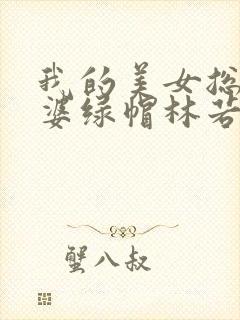 我的美女总
婆绿帽林若
蟹八叔